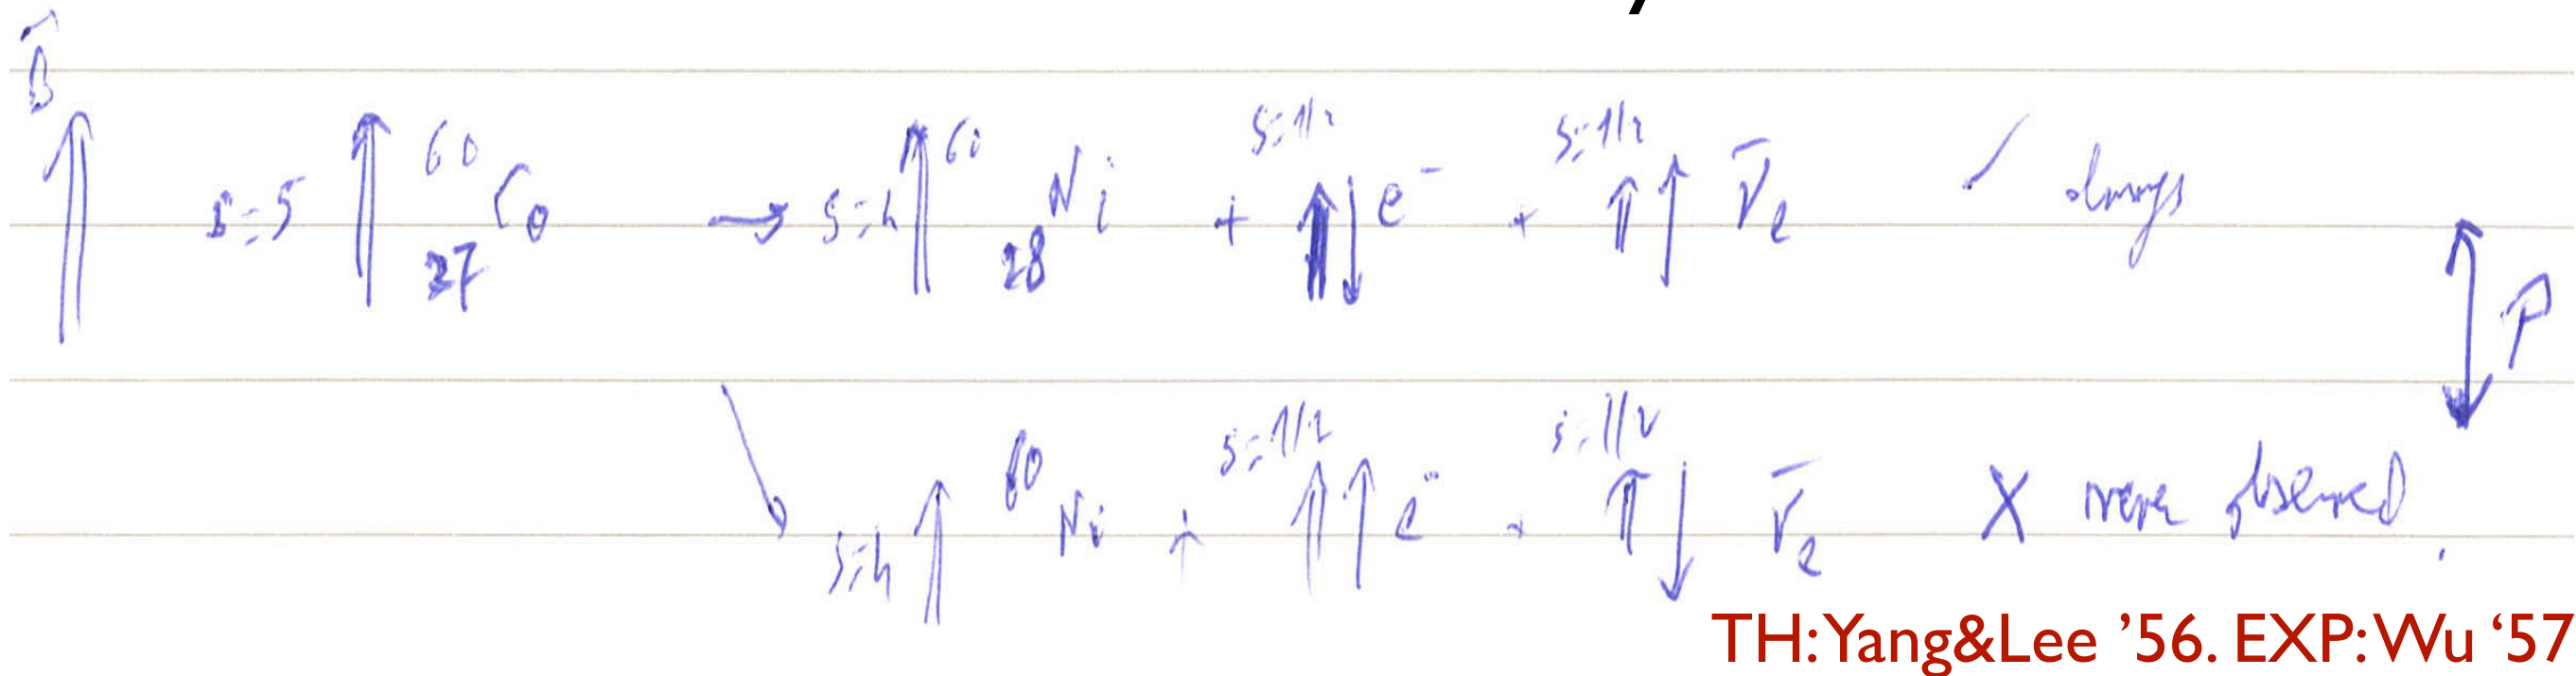 B⃗
s=5 ⇑ ⁶⁰₂₇Co → s=4 ⇑ ⁶⁰₂₈Ni + s=1/2 ⇑↓ e⁻ + s=1/2 ⇑↑ ν̄e ✓ always
P
s=4 ⇑ ⁶⁰Ni + s=1/2 ⇑↑ e⁻ + s=1/2 ⇑↓ ν̄e X never observed.
TH:Yang&Lee ’56. EXP:Wu ‘57